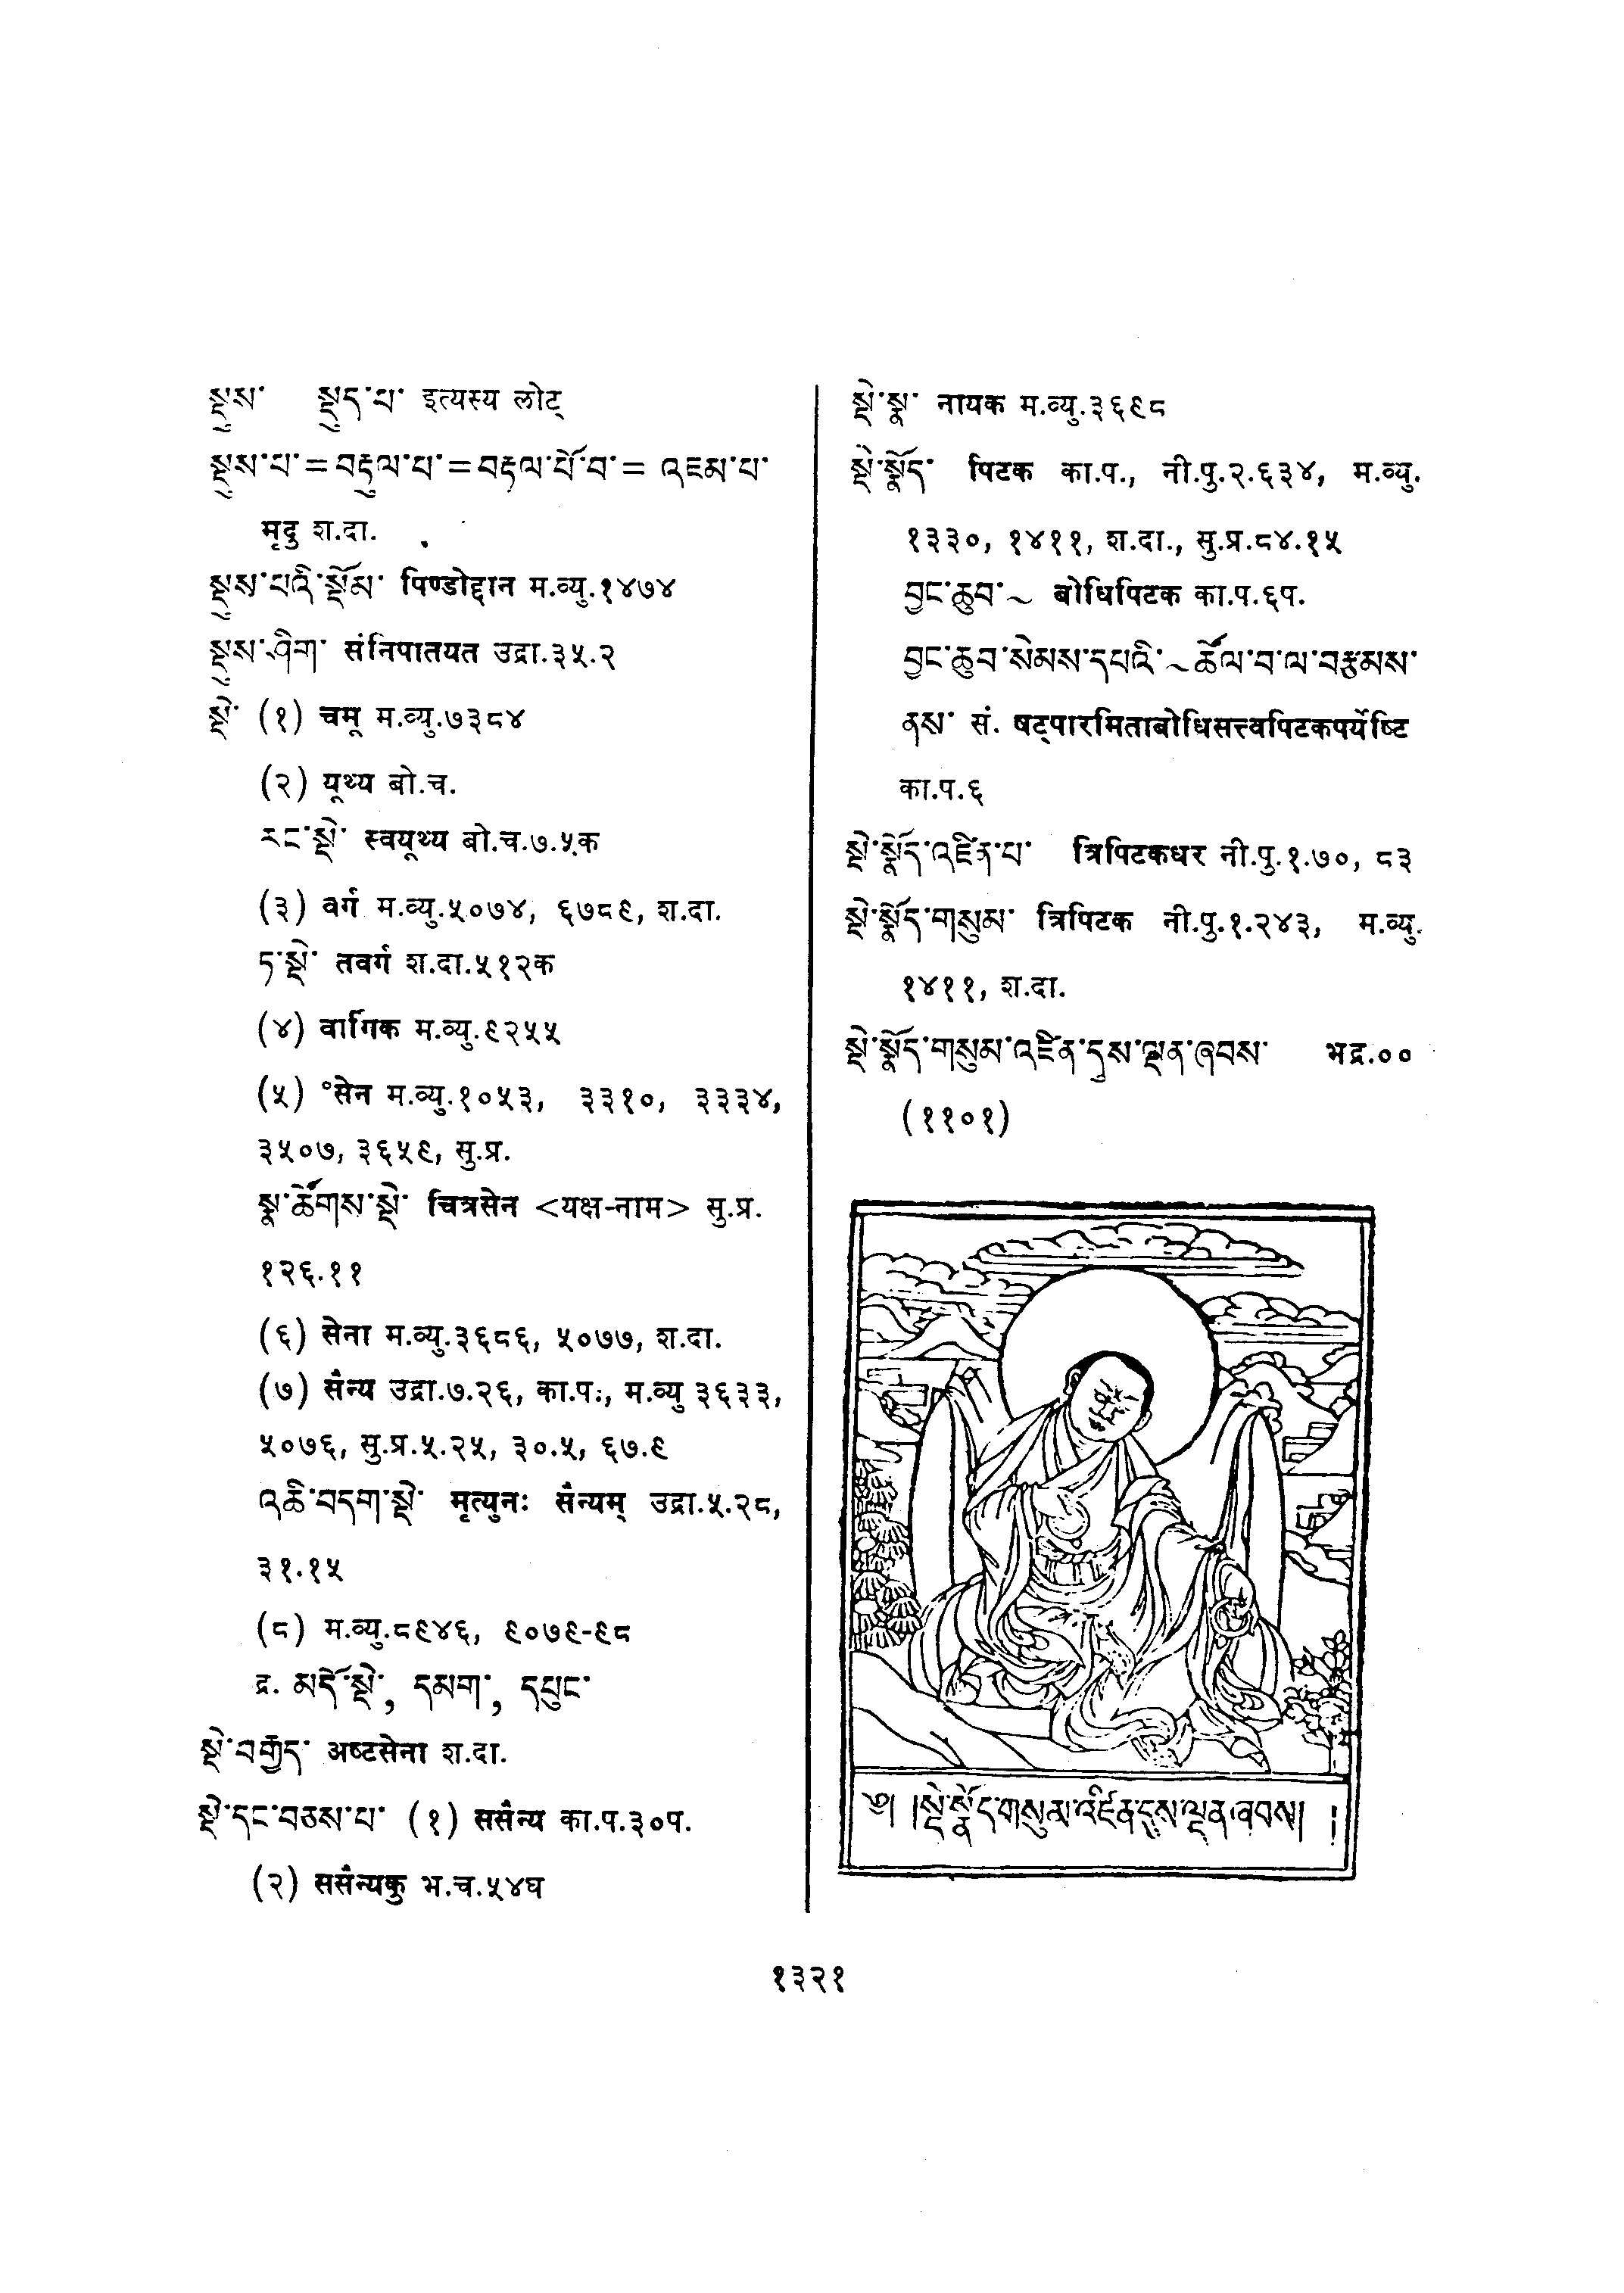 སྡུས་ སྡུད་པ་ इत्यस्य लोट्
སྡུས་པ་=བརྡུལ་པ་=བརྡལ་པོ་བ་= འཇམ་པ་
मृदु श.दा.
སྡུས་པའི་སྡོམ་ पिण्डोद्दान म.व्यु.१४७४
སྡུས་ཤིག་ संनिपातयत उद्रा.३५.२
སྡེ་ (१) चमू म.व्यु.७३८४
(२) यूथ्य बो.च.
རང་སྡེ་ स्वयूथ्य बो.च.७.५क
(३) वर्ग म.व्यु.५०७४, ६७८९, श.दा.
ཏ་སྡེ་ तवर्ग श.दा.५१२क
(४) वार्गिक म.व्यु.९२५५
(५) °सेन म.व्यु.१०५३, ३३१०, ३३३४,
३५०७, ३६५९, सु.प्र.
སྣ་ཚོགས་སྡེ་ चित्रसेन <यक्ष-नाम> सु.प्र.
१२६.११
(६) सेना म.व्यु.३६८६, ५०७७, श.दा.
(७) सैन्य उद्रा.७.२६, का.प., म.व्यु ३६३३,
५०७६, सु.प्र.५.२५, ३०.५, ६७.९
འཆི་བདག་སྡེ་ मृत्युनः सैन्यम् उद्रा.५.२८,
३१.१५
(८) म.व्यु.८९४६, ९०७९-९८
द्र. མདོ་སྡེ་, དམག་, དཔུང་
སྡེ་བརྒྱད་ अष्टसेना श.दा.
སྡེ་དང་བཅས་པ་ (१) ससैन्य का.प.३०प.
(२) ससैन्यकु भ.च.५४घ
སྡེ་སྣ་ नायक म.व्यु.३६९८
སྡེ་སྣོད་ पिटक का.प., नी.पु.२.६३४, म.व्यु.
१३३०, १४११, श.दा., सु.प्र.८४.१५
བྱང་ཆུབ་~ बोधिपिटक का.प.६प.
བྱང་ཆུབ་སེམས་དཔའི་~ཚོལ་བ་ལ་བརྩམས་
ནས་ सं. षट्पारमिताबोधिसत्त्वपिटकपर्येष्टि
का.प.६
སྡེ་སྣོད་འཛིན་པ་ त्रिपिटकधर नी.पु.१.७०, ८३
སྡེ་སྣོད་གསུམ་ त्रिपिटक नी.पु.१.२४३, म.व्यु.
१४११, श.दा.
སྡེ་སྣོད་གསུམ་འཛིན་དུས་ལྡན་ཞབས་ भद्र.००
(११०१)
༄། །སྡེ་སྣོད་གསུམ་འཛིན་དུས་ལྡན་ཞབས། །
१३२१